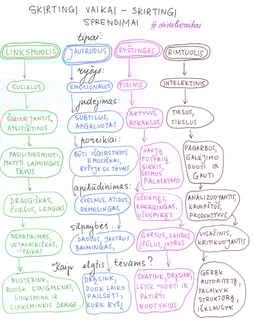 SKIRTINGI VAIKAI - SKIRTINGI
SPRENDIMAI
tipai:
LINKSMUOLIS
JAUTRUOLIS
RYŽTINGAS
RIMTUOLIS
ryšys:
SOCIALUS
EMOCIONALUS
FIZINIS
INTELEKTINIS
judėjimas:
ATSITIKTINIS
SUBTILUS,
APGALVOTAS
AKTYVUS,
ATRAKUS
TIESUS,
TIKSLUS
poreikiai:
PASILINKSMINTI,
MATYTI LAIMINGUS
TĖVUS
BŪTI IŠGIRSTIEMS
EMOCIŠKAI,
RYŠYJE SU TĖVAIS
NAUJŲ
POTYRIŲ,
SIEKIS,
ŠEIMOS
PALAIKYMO
PAGARBOS,
GALĖJIMO
DUOTI IR
GAUTI
apibūdinimas:
DRAUGIŠKAS,
ŠVIESUS, LENGVAS
ŠVELNUS, ATIDUS
DĖMESINGAS
UŽSIĖMĘS,
ENERGINGAS,
UŽSISPYRĘS
ANALIZUOJANTIS,
KRUOPŠTUS,
PRODUKTYVUS
silpnybės:
NEPATIKIMAS,
UŽJAUSIANTIS
DROVUS, JAUTRUS
BAIMINGAS
GARSUS, LANDUS
ĮŽŪLUS, ĮKYRUS
VISAŽINIS,
KRITIKUOJANTIS
Kaip elgtis tėvams?
NUSTEBINK,
RUOŠK STAIGMENAS,
LINKSMINK IR
LINKSMINKIS DRAUGE
DRĄSINK,
DUOK LAIKO
PAILSĖTI,
KURK RYŠĮ
SKATINK, DRĄSINK,
LEISK JUDĖTI IR
PATIRTI
NUOTYKIUS
GERBK
AUTORITETĄ,
PALAIKYK
STRUKTŪRĄ,
IŠKLAUSYK